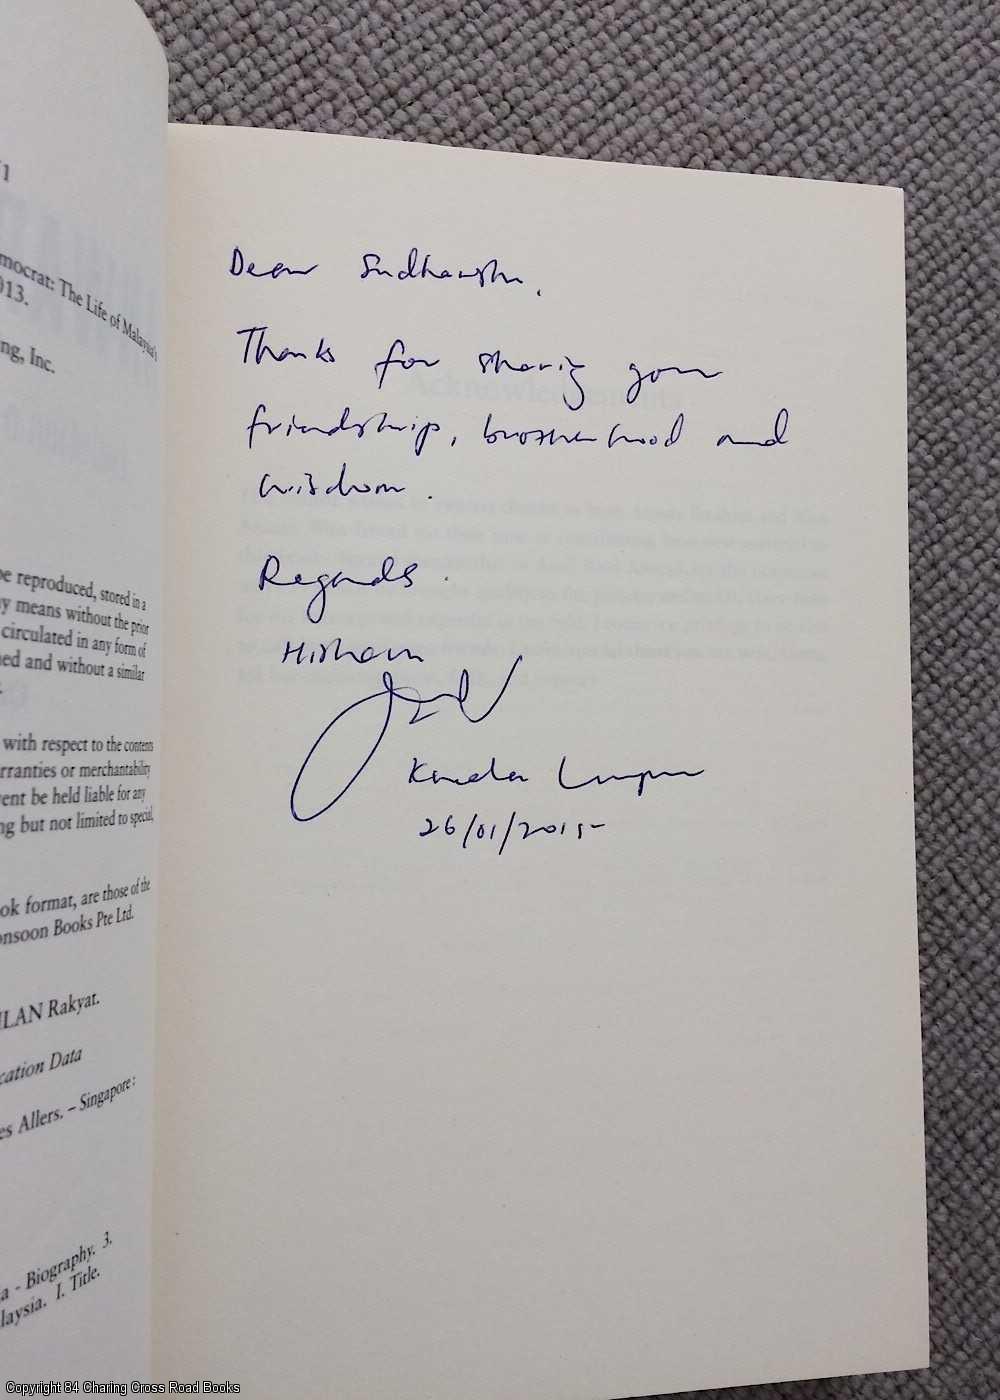 /1
mocrat: The Life of Malaysia's
013.
ng, Inc.
be reproduced, stored in a
y means without the prior
circulated in any form of
ned and without a similar
with respect to the contents
rranties or merchantability
vent be held liable for any
ng but not limited to special,
ok format, are those of the
onsoon Books Pte Ltd.
ILAN Rakyat.
cation Data
es Allers. – Singapore:
a - Biography. 3.
laysia. I. Title.
Dear Sudhanshu,
Thanks for sharing your
friendship, brotherhood and
wisdom.
Regards.
Hisham
Kuala Lumpur
26/01/2015
Acknowledgements
Copyright 84 Charing Cross Road Books